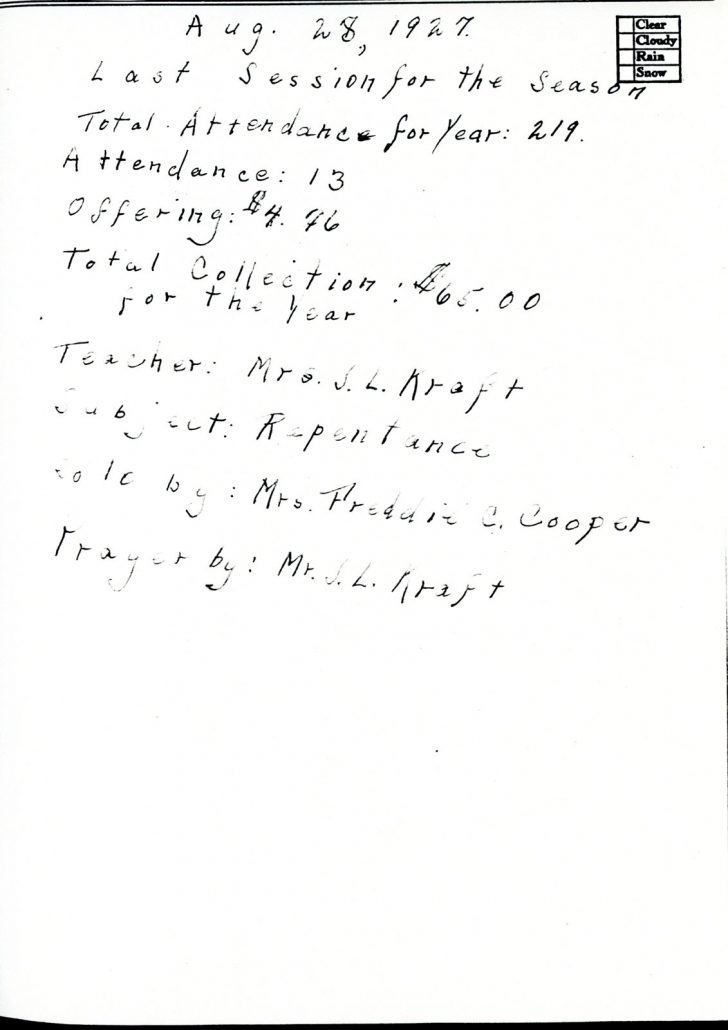 Aug. 28, 1927.
Clear
Cloudy
Rain
Snow
Last Session for the Season
Total Attendance for Year: 219.
Attendance: 13
Offering: $4.
Total Collection : $65.00
for the Year
Teacher: Mrs. J. L. Kraft
Subject: Repentance
Solo by: Mrs. Freddie C. Cooper
Prayer by: Mr. J. L. Kraft